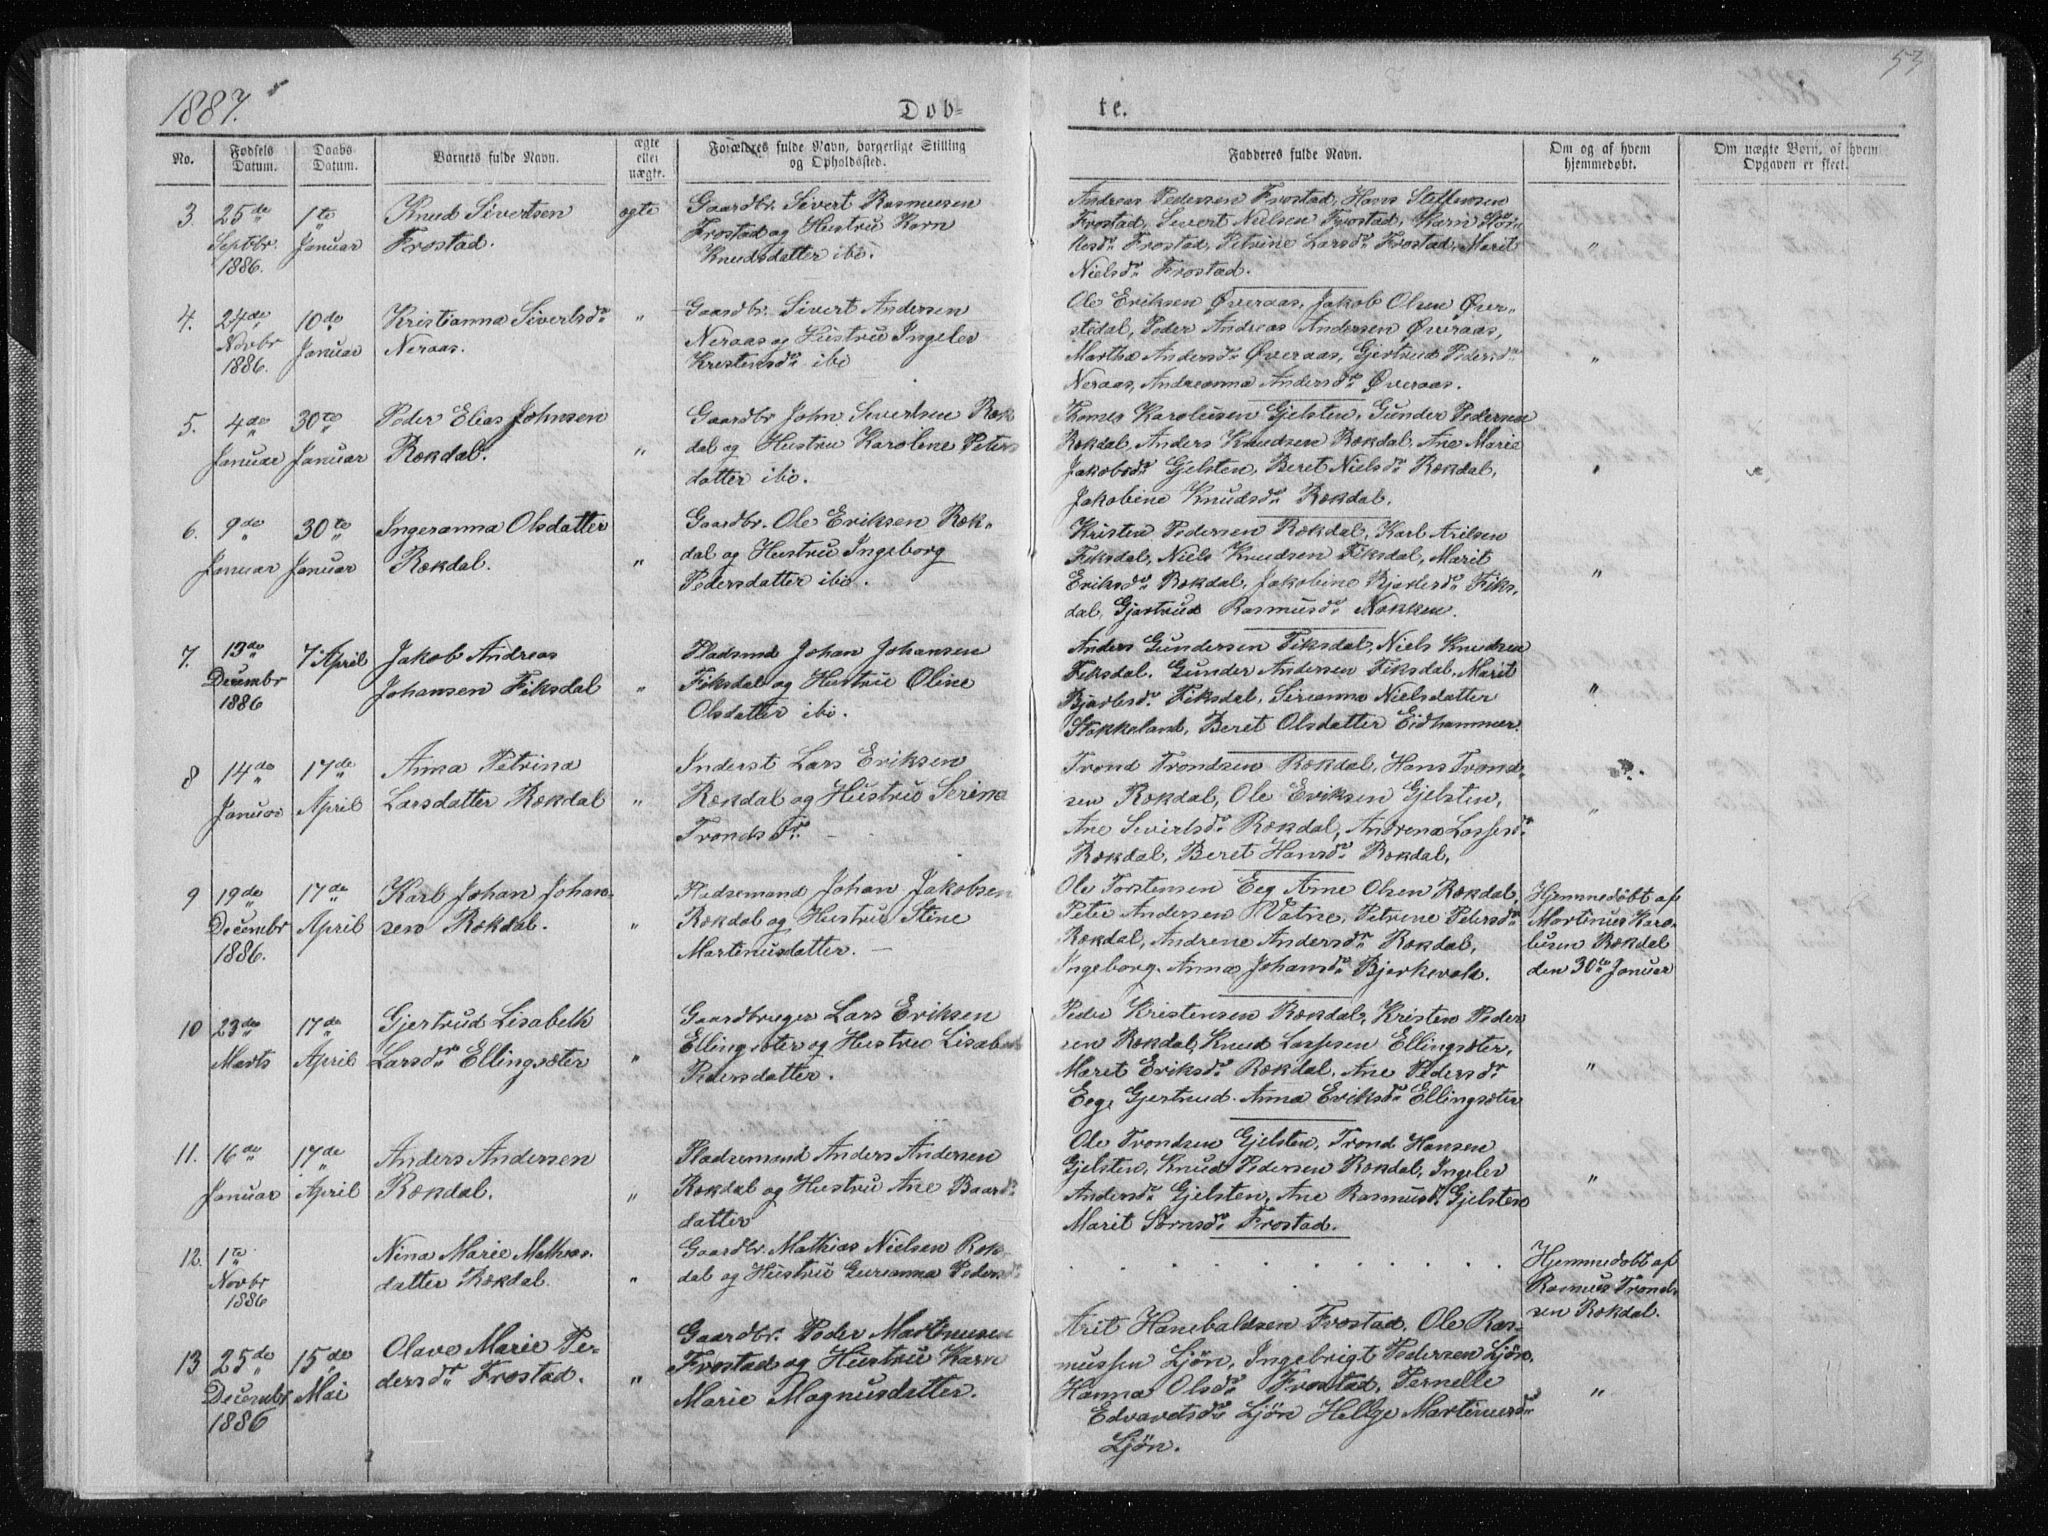 53
1887.
Døb-
te.
No.
Fødsels Datum.
Daabs Datum.
Barnets fulde Navn.
ægte eller uægte.
Forældres fulde Navn, borgerlige Stilling og Opholdssted.
Fadderes fulde Navn.
Om og af hvem hjemmedøbt.
Om uægte Børn, af hvem Opgaven er skeet.
3.
25de Septbr 1886.
1te Januar
Knud Sivertsen
Frostad.
ægte
Gaardbr. Sivert Rasmussen
Frostad og Hustru Karn
Knudsdatter ibi.
Andreas Pedersen Frostad, Hans Steffensen
Frostad, Sivert Nielsen Frostad, Karn
Frostad, Petrine Larsdr Frostad, Marit
Nielsdr Frostad.
"
4.
24de Novbr 1886.
10de Januar
Kristianna Sivertsdr
Neraas.
"
Gaardbr. Sivert Andersen
Neraas og Hustru Ingeler
Kristensdr ibi
Ole Eriksen Øveraas, Jakob Olsen Øver-
stedal, Peder Andreas Andersen Øveraas,
Martha Andersdr Øveraas, Gjertrud Pedersdr
Neraas, Andreanna Andersdr Øveraas.
"
5.
4de Januar
30te Januar
Peder Elias Johnsen
Rekdal.
"
Gaardbr John Sivertsen Rek
dal og Hustru Karolene Peters
datter ibi.
Thomas Karolusen Gjelsten, Gunder Pedersen
Rekdal, Anders Knudsen Rekdal, Ane Marie
Jakobsdr Gjelsten, Beret Nielsdr Rekdal,
Jakobine Knudsdr Rekdal.
"
6.
9de Januar
30te Januar
Ingeranna Olsdatter
Rekdal.
"
Gaardbr. Ole Eriksen Rek-
dal og Hustru Ingeborg
Pedersdatter ibi.
Kristen Pedersen Rekdal, Karl Arilsen
Fiksdal, Niels Knudsen Fiksdal, Marit
Eriksdr Rekdal, Jakobine Bjarlesdr Fiks-
dal, Gjertrud Rasmusdr Nakken.
"
7.
13de Decembr 1886
7 April
Jakob Andreas
Johansen Fiksdal
"
Pladsmd Johan Johansen
Fiksdal og Hustru Oline
Olsdatter ibi.
Anders Gundersen Fiksdal, Niels Knudsen
Fiksdal, Gunder Andersen Fiksdal, Marit
Bjarlesdr Fiksdal, Sirianna Nielsdatter
Stokkeland, Beret Olsdatter Eidhammer.
"
8
14de Januar
17de April
Anna Petrina
Larsdatter Rekdal
"
Inderst Lars Eriksen
Rekdal og Hustru Serina
Trondsdr. –
Trond Trondsen Rekdal, Hans Trond-
sen Rekdal, Ole Eriksen Gjelsten,
Ane Sivertsdr Rekdal, Andrena Lassesdr
Rekdal, Beret Hansdr Rekdal,
"
9
19de Decembr 1886.
17de April
Karl Johan Johan-
sen Rekdal.
"
Pladsemand Johan Jakobsen
Rekdal og Hustru Stine
Martinusdatter. –
Ole Torstensen Eeg Arne Olsen Rekdal,
Peter Andersen Vatne, Petrine Pedersdr
Rekdal, Andrene Andersdr Rekdal,
Ingeborg Anna Johansdr Bjerkevold.
Hjemmedøbt af
Martinus Karo-
lusen Rekdal
den 30te Januar
10
23de Marts
17de April
Gjertrud Lisabeth
Larsdr Ellingsæter
"
Gaardbruger Lars Eriksen
Ellingsæter og Hustru Lisabeth
Pedersdatter.
Peder Kristensen Rekdal, Kristen Peder
sen Rekdal, Knud Lassesen Ellingsæter,
Maret Eriksdr Rekdal, Ane Pedersdr
Eeg, Gjertrud Anna Eriksdr Ellingsæter
"
11.
16de Januar
17de April
Anders Andersen
Rekdal.
"
Pladsemand Anders Andersen
Rekdal og Hustru Ane Baards
datter
Ole Trondsen Gjelsten, Trond Hansen
Gjelsten, Knud Pedersen Rekdal, Ingeler
Andersdr Gjelsten, Ane Rasmusdr Gjelsten
Marit Sørnsdr Frostad.
"
12.
1te Novbr 1886
Nina Marie Mathias-
datter Rekdal.
"
Gaardbr. Mathias Nielsen Rek-
dal og Hustru Gurianna Pedersdr
. . . . . . . . . . .
Hjemmedøbt af
Rasmus Trond-
sen Rekdal.
13
25de Decembr 1886
15de Mai
Olave Marie Pe-
dersdr Frostad.
"
Gaardbr. Peder Martinusen
Frostad og Hustru Karn
Marie Magnusdatter.
Arit Hanibaldsen Frostad, Ole Ras-
mussen Ljøn, Ingebrigt Pedersen Ljøn,
Hanna Olsdr Frostad, Pernelle
Edvardsdr Ljøn Hellge Martinusdr
Ljøn.
"